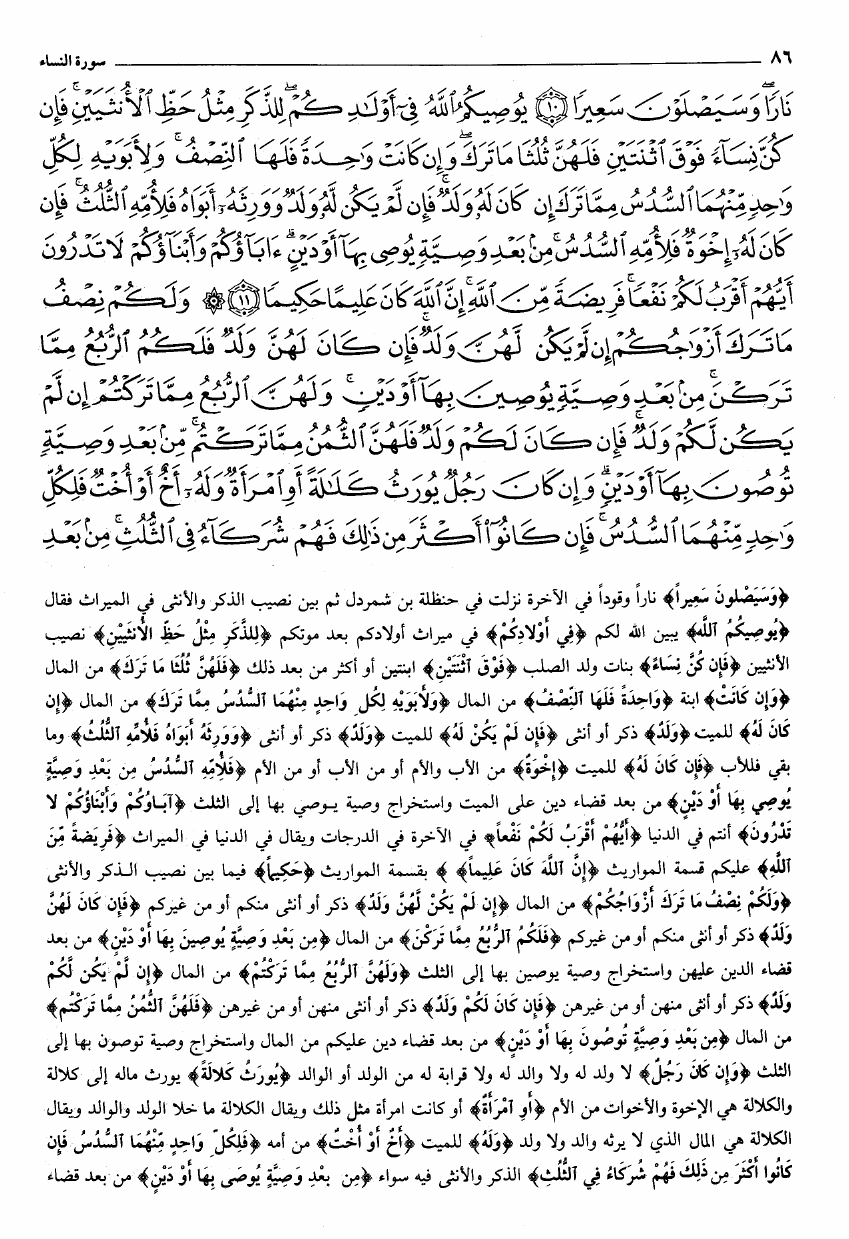 ٨٦ سورة النساء
نَارًا وَسَيَصْلَوْنَ سَعِيرًا ۝١٠ يُوصِيكُمُ ٱللَّهُ فِىٓ أَوْلَٰدِكُمْ ۖ لِلذَّكَرِ مِثْلُ حَظِّ ٱلْأُنثَيَيْنِ ۚ فَإِن
كُنَّ نِسَآءً فَوْقَ ٱثْنَتَيْنِ فَلَهُنَّ ثُلُثَا مَا تَرَكَ ۖ وَإِن كَانَتْ وَٰحِدَةً فَلَهَا ٱلنِّصْفُ ۚ وَلِأَبَوَيْهِ لِكُلِّ
وَٰحِدٍ مِّنْهُمَا ٱلسُّدُسُ مِمَّا تَرَكَ إِن كَانَ لَهُۥ وَلَدٌ ۚ فَإِن لَّمْ يَكُن لَّهُۥ وَلَدٌ وَوَرِثَهُۥٓ أَبَوَاهُ فَلِأُمِّهِ ٱلثُّلُثُ ۚ فَإِن
كَانَ لَهُۥٓ إِخْوَةٌ فَلِأُمِّهِ ٱلسُّدُسُ ۚ مِنۢ بَعْدِ وَصِيَّةٍ يُوصِى بِهَآ أَوْ دَيْنٍ ۗ ءَابَآؤُكُمْ وَأَبْنَآؤُكُمْ لَا تَدْرُونَ
أَيُّهُمْ أَقْرَبُ لَكُمْ نَفْعًا ۚ فَرِيضَةً مِّنَ ٱللَّهِ ۗ إِنَّ ٱللَّهَ كَانَ عَلِيمًا حَكِيمًا ۝١١ ۞ وَلَكُمْ نِصْفُ
مَا تَرَكَ أَزْوَٰجُكُمْ إِن لَّمْ يَكُن لَّهُنَّ وَلَدٌ ۚ فَإِن كَانَ لَهُنَّ وَلَدٌ فَلَكُمُ ٱلرُّبُعُ مِمَّا
تَرَكْنَ ۚ مِنۢ بَعْدِ وَصِيَّةٍ يُوصِينَ بِهَآ أَوْ دَيْنٍ ۚ وَلَهُنَّ ٱلرُّبُعُ مِمَّا تَرَكْتُمْ إِن لَّمْ
يَكُن لَّكُمْ وَلَدٌ ۚ فَإِن كَانَ لَكُمْ وَلَدٌ فَلَهُنَّ ٱلثُّمُنُ مِمَّا تَرَكْتُم ۚ مِّنۢ بَعْدِ وَصِيَّةٍ
تُوصُونَ بِهَآ أَوْ دَيْنٍ ۗ وَإِن كَانَ رَجُلٌ يُورَثُ كَلَٰلَةً أَوِ ٱمْرَأَةٌ وَلَهُۥٓ أَخٌ أَوْ أُخْتٌ فَلِكُلِّ
وَٰحِدٍ مِّنْهُمَا ٱلسُّدُسُ ۚ فَإِن كَانُوٓا۟ أَكْثَرَ مِن ذَٰلِكَ فَهُمْ شُرَكَآءُ فِى ٱلثُّلُثِ ۚ مِنۢ بَعْدِ
﴿وَسَيَصْلَونَ سَعِيراً﴾ ناراً وقوداً في الآخرة نزلت في حنظلة بن شمردل ثم بين نصيب الذكر والأنثى في الميراث فقال
﴿يُوصِيكُمُ ٱللَّهُ﴾ يبين الله لكم ﴿فِي أَوْلَادِكُمْ﴾ في ميراث أولادكم بعد موتكم ﴿لِلذَّكَرِ مِثْلُ حَظِّ الأُنثَيَيْنِ﴾ نصيب
الأنثيين ﴿فَإِن كُنَّ نِسَاءً﴾ بنات ولد الصلب ﴿فَوْقَ ٱثْنَتَيْنِ﴾ ابنتين أو أكثر من بعد ذلك ﴿فَلَهُنَّ ثُلُثَا مَا تَرَكَ﴾ من المال
﴿وَإِن كَانَتْ﴾ ابنة ﴿وَاحِدَةً فَلَهَا ٱلنِّصْفُ﴾ من المال ﴿وَلِأَبَوَيْهِ لِكُلِّ وَاحِدٍ مِنْهُمَا ٱلسُّدُسُ مِمَّا تَرَكَ﴾ من المال ﴿إِن
كَانَ لَهُ﴾ للميت ﴿وَلَدٌ﴾ ذكر أو أنثى ﴿فَإِن لَمْ يَكُنْ لَهُ﴾ للميت ﴿وَلَدٌ﴾ ذكر أو أنثى ﴿وَوَرِثَهُ أَبَوَاهُ فَلِأُمِّهِ ٱلثُّلُثُ﴾ وما
بقي فللأب ﴿فَإِن كَانَ لَهُ﴾ للميت ﴿إِخْوَةٌ﴾ من الأب والأم أو من الأب أو من الأم ﴿فَلِأُمِّهِ ٱلسُّدُسُ مِن بَعْدِ وَصِيَّةٍ
يُوصِي بِهَا أَوْ دَيْنٍ﴾ من بعد قضاء دين على الميت واستخراج وصية يوصي بها إلى الثلث ﴿آبَاؤُكُمْ وَأَبْنَاؤُكُمْ لَا
تَدْرُونَ﴾ أنتم في الدنيا ﴿أَيُّهُمْ أَقْرَبُ لَكُمْ نَفْعاً﴾ في الآخرة في الدرجات ويقال في الدنيا في الميراث ﴿فَرِيضَةً مِّنَ
ٱللَّهِ﴾ عليكم قسمة المواريث ﴿إِنَّ ٱللَّهَ كَانَ عَلِيماً﴾ ﴾ بقسمة المواريث ﴿حَكِيماً﴾ فيما بين نصيب الذكر والأنثى
﴿وَلَكُمْ نِصْفُ مَا تَرَكَ أَزْوَاجُكُمْ﴾ من المال ﴿إِن لَمْ يَكُنْ لَّهُنَّ وَلَدٌ﴾ ذكر أو أنثى منكم أو من غيركم ﴿فَإِن كَانَ لَهُنَّ
وَلَدٌ﴾ ذكر أو أنثى منكم أو من غيركم ﴿فَلَكُمُ ٱلرُّبُعُ مِمَّا تَرَكْنَ﴾ من المال ﴿مِن بَعْدِ وَصِيَّةٍ يُوصِينَ بِهَا أَوْ دَيْنٍ﴾ من بعد
قضاء الدين عليهن واستخراج وصية يوصين بها إلى الثلث ﴿وَلَهُنَّ ٱلرُّبُعُ مِمَّا تَرَكْتُمْ﴾ من المال ﴿إِن لَّمْ يَكُن لَّكُمْ
وَلَدٌ﴾ ذكر أو أنثى منهن أو من غيرهن ﴿فَإِن كَانَ لَكُمْ وَلَدٌ﴾ ذكر أو أنثى منهن أو من غيرهن ﴿فَلَهُنَّ ٱلثُّمُنُ مِمَّا تَرَكْتُم﴾
من المال ﴿مِن بَعْدِ وَصِيَّةٍ تُوصُونَ بِهَا أَوْ دَيْنٍ﴾ من بعد قضاء دين عليكم من المال واستخراج وصية توصون بها إلى
الثلث ﴿وَإِن كَانَ رَجُلٌ﴾ لا ولد له ولا والد له ولا قرابة له من الولد أو الوالد ﴿يُورَثُ كَلَالَةً﴾ يورث ماله إلى كلالة
والكلالة هي الإخوة والأخوات من الأم ﴿أَوِ ٱمْرَأَةٌ﴾ أو كانت امرأة مثل ذلك ويقال الكلالة ما خلا الولد والوالد ويقال
الكلالة هي المال الذي لا يرثه والد ولا ولد ﴿وَلَهُ﴾ للميت ﴿أَخٌ أَوْ أُخْتٌ﴾ من أمه ﴿فَلِكُلِّ وَاحِدٍ مِّنْهُمَا ٱلسُّدُسُ فَإِن
كَانُوا أَكْثَرَ مِن ذَلِكَ فَهُمْ شُرَكَاءُ فِي ٱلثُّلُثِ﴾ الذكر والأنثى فيه سواء ﴿مِن بَعْدِ وَصِيَّةٍ يُوصَى بِهَا أَوْ دَيْنٍ﴾ من بعد قضاء